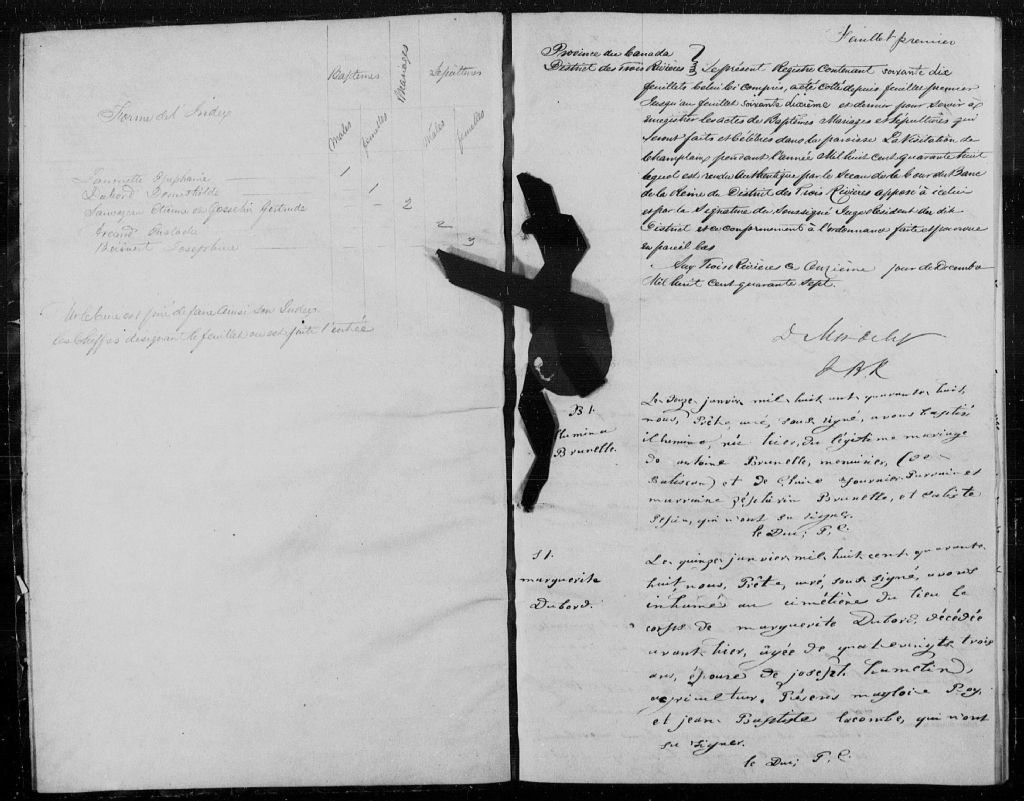 Baptêmes
Mariages
Sépultures
Forme de l'Index
Males
femelles
mâles
femelles
Epiphanie 1
Dubord Domithilde 1
Sauvageau Etienne et Gosselin Gertrude 2
2
Josephine 3
M. le Curé est prié de faire ainsi son Index
les Chiffres désignant le feuillet ou est faite l'entrée
Feuillet premier
Province du Canada
District des Trois Rivières
Le présent Registre Contenant soixante dix
feuillets Celui ci compris, a été coté depuis feuillet premier
Jusqu'au feuillet soixante dixième et dernier pour servir à
enregistrer les actes de Baptêmes Mariages et Sépultures qui
seront faits et Célébrés dans la paroisse La Visitation de
Champlain pendant l'année Mil huit Cent quarante huit
lequel est rendu Authentique par le Sceau de la Cour du Banc
de la Reine du District des Trois Rivières apposé à icelui
et par la Signature du Soussigné Juge Resident du dit
District et en conformement à l'ordonnance faite et pourvue
en pareil Cas
Aux Trois Rivières Ce Onzième jour de Decembre
Mil huit Cent quarante Sept.
B 1.
Brunelle.
Le douze janvier mil huit cent quarante huit,
nous, Prêtre, curé, sous signé, avons baptisé
née hier, du légitime mariage
de antoine Brunelle, menuisier, (de
Batiscan) et de fournier. Parrain et
marraine Zéphirin Brunelle, et
Pepin, qui n'ont su signer.
le Duc, P. C.
S 1.
marguerite
Dubord.
Le quinze janvier mil huit cent quarante
huit, nous, Prêtre, curé, sous signé, avons
inhumé au cimétière du lieu le
corps de marguerite Dubord, décédée
avant hier, âgée de quatrevingts trois
ans, épouse de joseph hamelin,
agriculteur. Présens magloire
et jean Baptiste lacombe, qui n'ont
su signer.
le Duc, P. C.